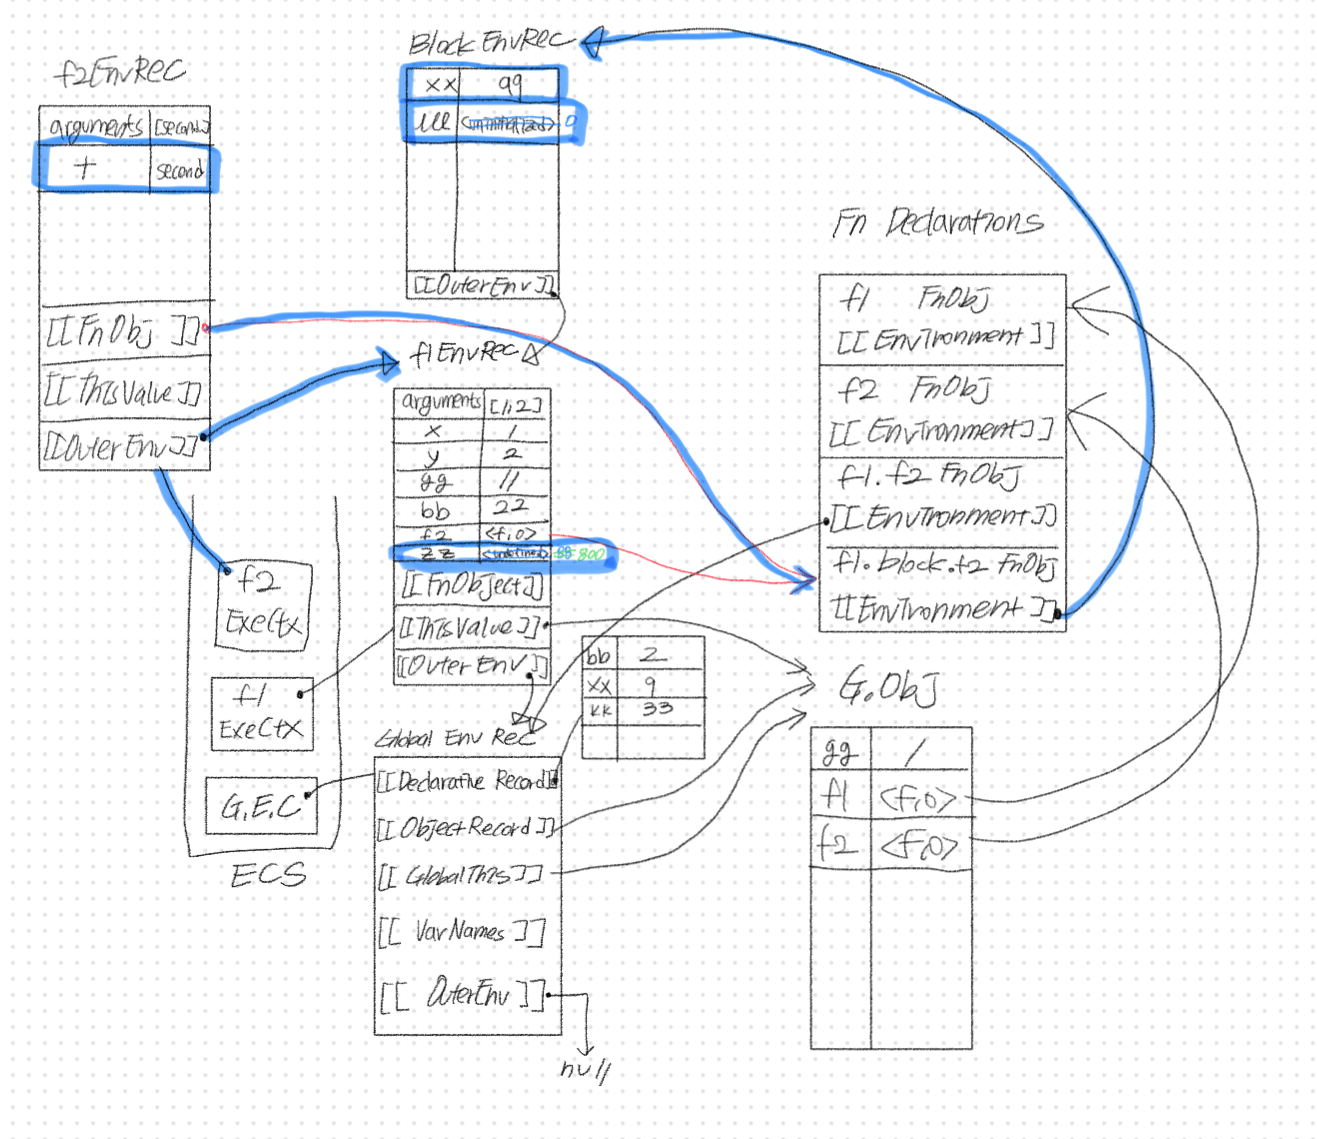 f2EnvRec
arguments [second]
t second
[[FnObj ]]
[[ThisValue]]
[[OuterEnv]]
Block EnvRec
xx 99
uu 0
[[OuterEnv]]
f1EnvRec
arguments [1,2]
x 1
y 2
gg 11
bb 22
f2 <f,o>
zz <undefined> 88 800
[[FnObject]]
[[ThisValue]]
[[Outer Env]]
Fn Declarations
f1 FnObj
[[Environment]]
f2 FnObj
[[Environment]]
f1.f2 FnObj
[[Environment]]
f1.block.f2 FnObj
[[Environment]]
f2
ExeCtx
f1
ExeCtx
G.E.C
ECS
bb 2
xx 9
kk 33
Global Env Rec
[[Declarative Record]]
[[ObjectRecord]]
[[GlobalThis]]
[[VarNames]]
[[OuterEnv]]
null
G.Obj
gg 1
f1 <f,o>
f2 <f,o>